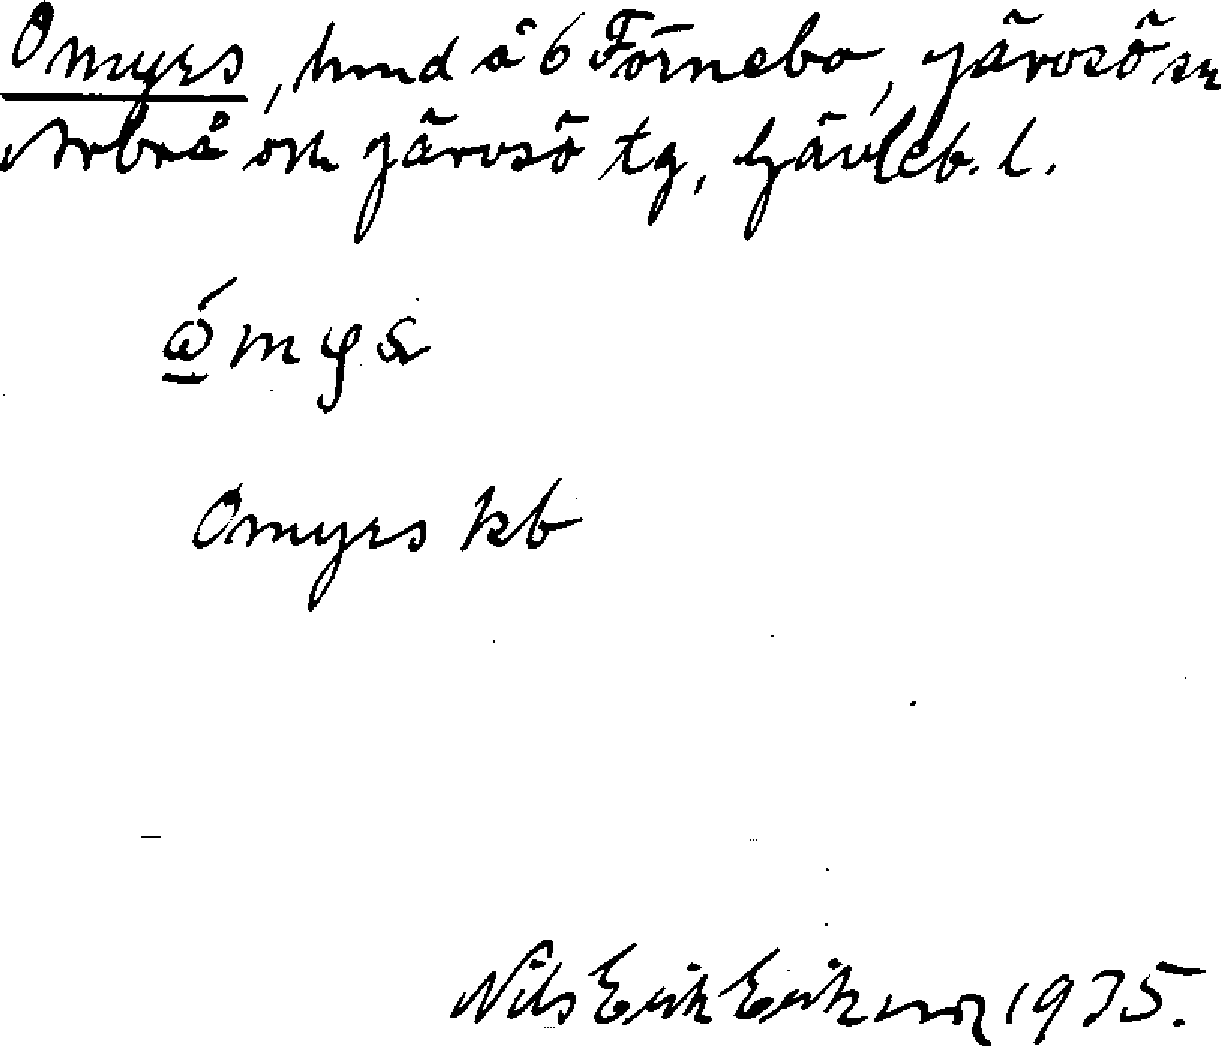 Omyrs, hmd å 6 Förnebo, Järvsö sn
Arbrå och Järvsö tg, Gävleb. l.
Omyrs kb
Nils Erik Eriksson 1935.